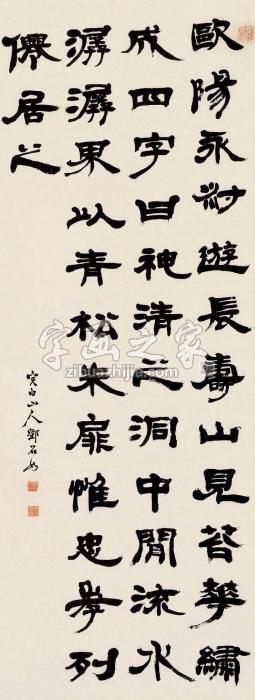 歐陽永叔遊長壽山見苔華繡
成四字曰神清之洞中聞流水
潺潺果以青松朱扉惟忠孝列
僊居之
完白山人鄧石如
字画之家
zihuazhijia.com